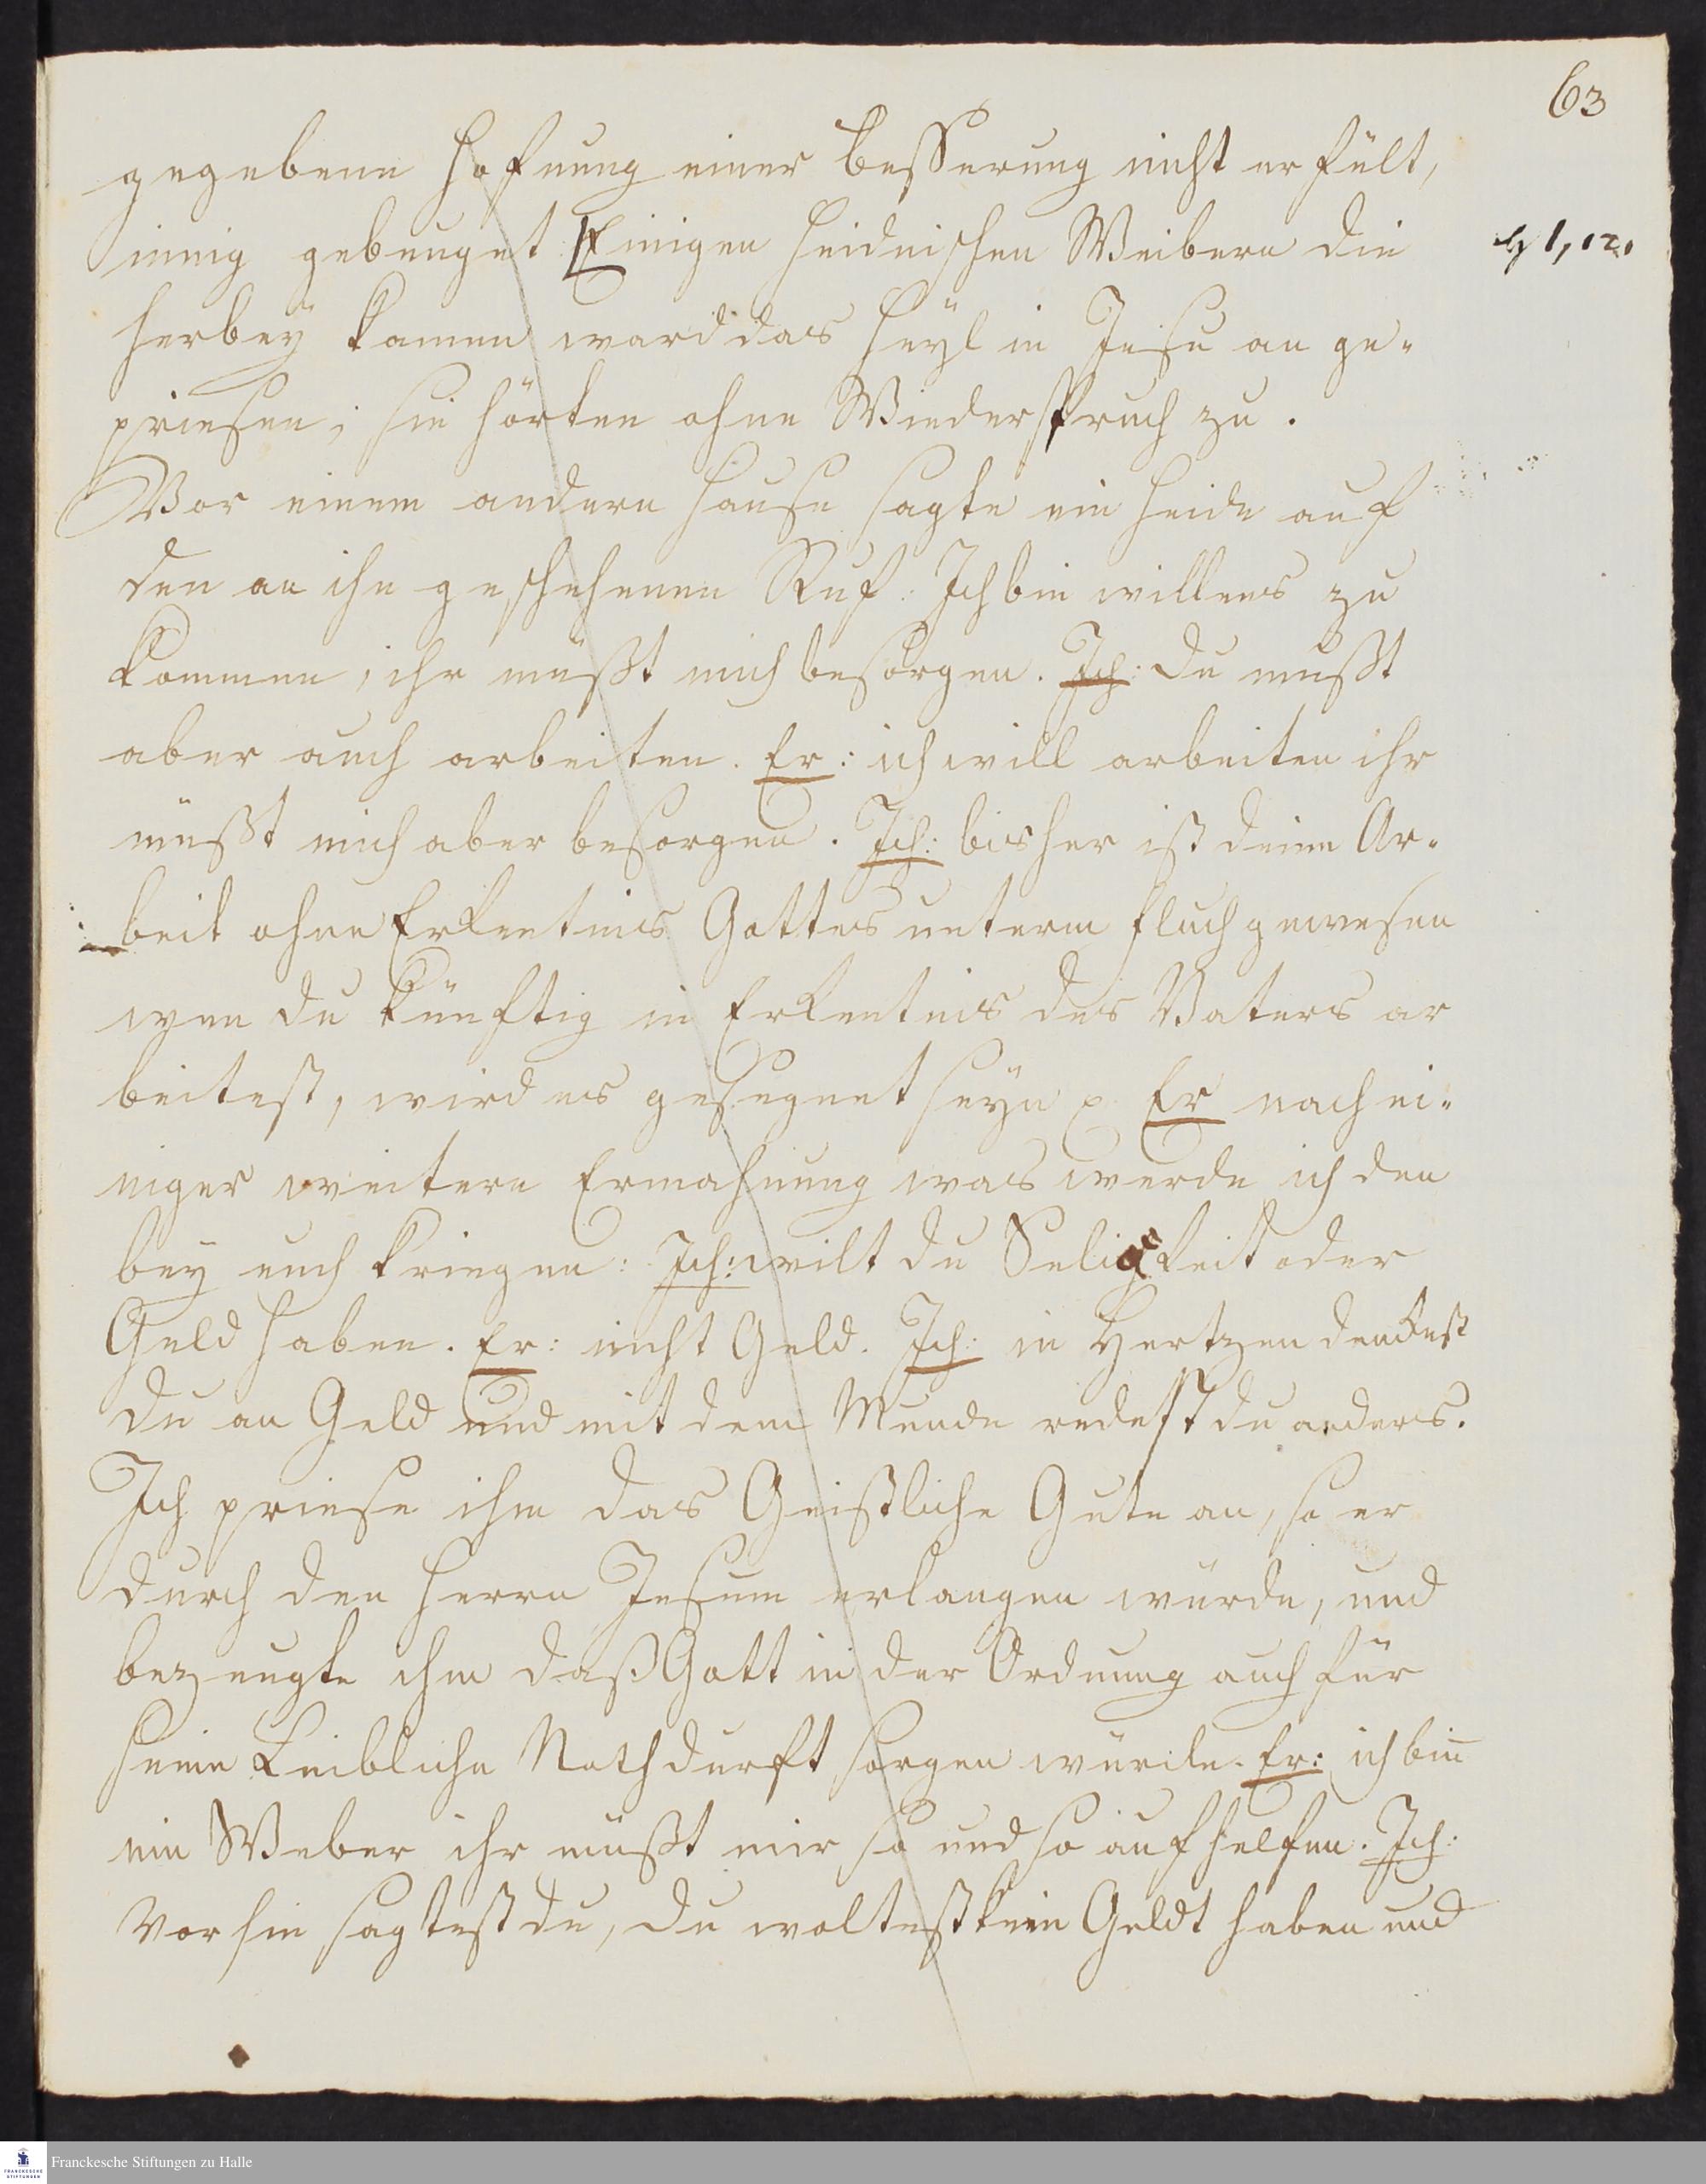 63
gegebene Hofnung einer beßerung nicht erfült,
innig gebeuget Einigen heidnischen Weibern die
herbeÿ kamen ward das Heÿl in Jesu an ge-
priesen; sie hörten ohne Wiederspruch zu.
Vor einem andern Hause sagte ein Heide auf
den an ihn geschehenen Ruf: Ich bin willens zu
kommen, ihr müßt mich besorgen. Ich: du mußt
aber auch arbeiten. Er: ich will arbeiten ihr
müßt mich aber besorgen. Ich: bisher ist deine Ar-
beit ohne Erkentnis Gottes unterm fluch gewesen
wen du künftig in Erkentnis des Vaters ar
beitest, wird es gesegnet seÿn p. Er nach ei-
niger weitern Ermahnung was werde ich den
beÿ euch kriegen: Ich: wilt du Seligkeit oder
Geld haben. Er: nicht Geld. Ich: in Hertzen denckest
du an Geld und mit dem Munde redest du anders.
Ich priese ihm das Geistliche Gute an, so er
durch den Herrn Jesum erlangen würde, und
bezeugte ihm daß Gott in der Ordnung auch für
seine Leibliche Nothdurft sorgen würde. Er: ich bin
ein Weber ihr müßt mir so und so aufhelfen. Ich:
Vorhin sagtest du, du woltest kein Geldt haben und
Franckesche Stiftungen zu Halle